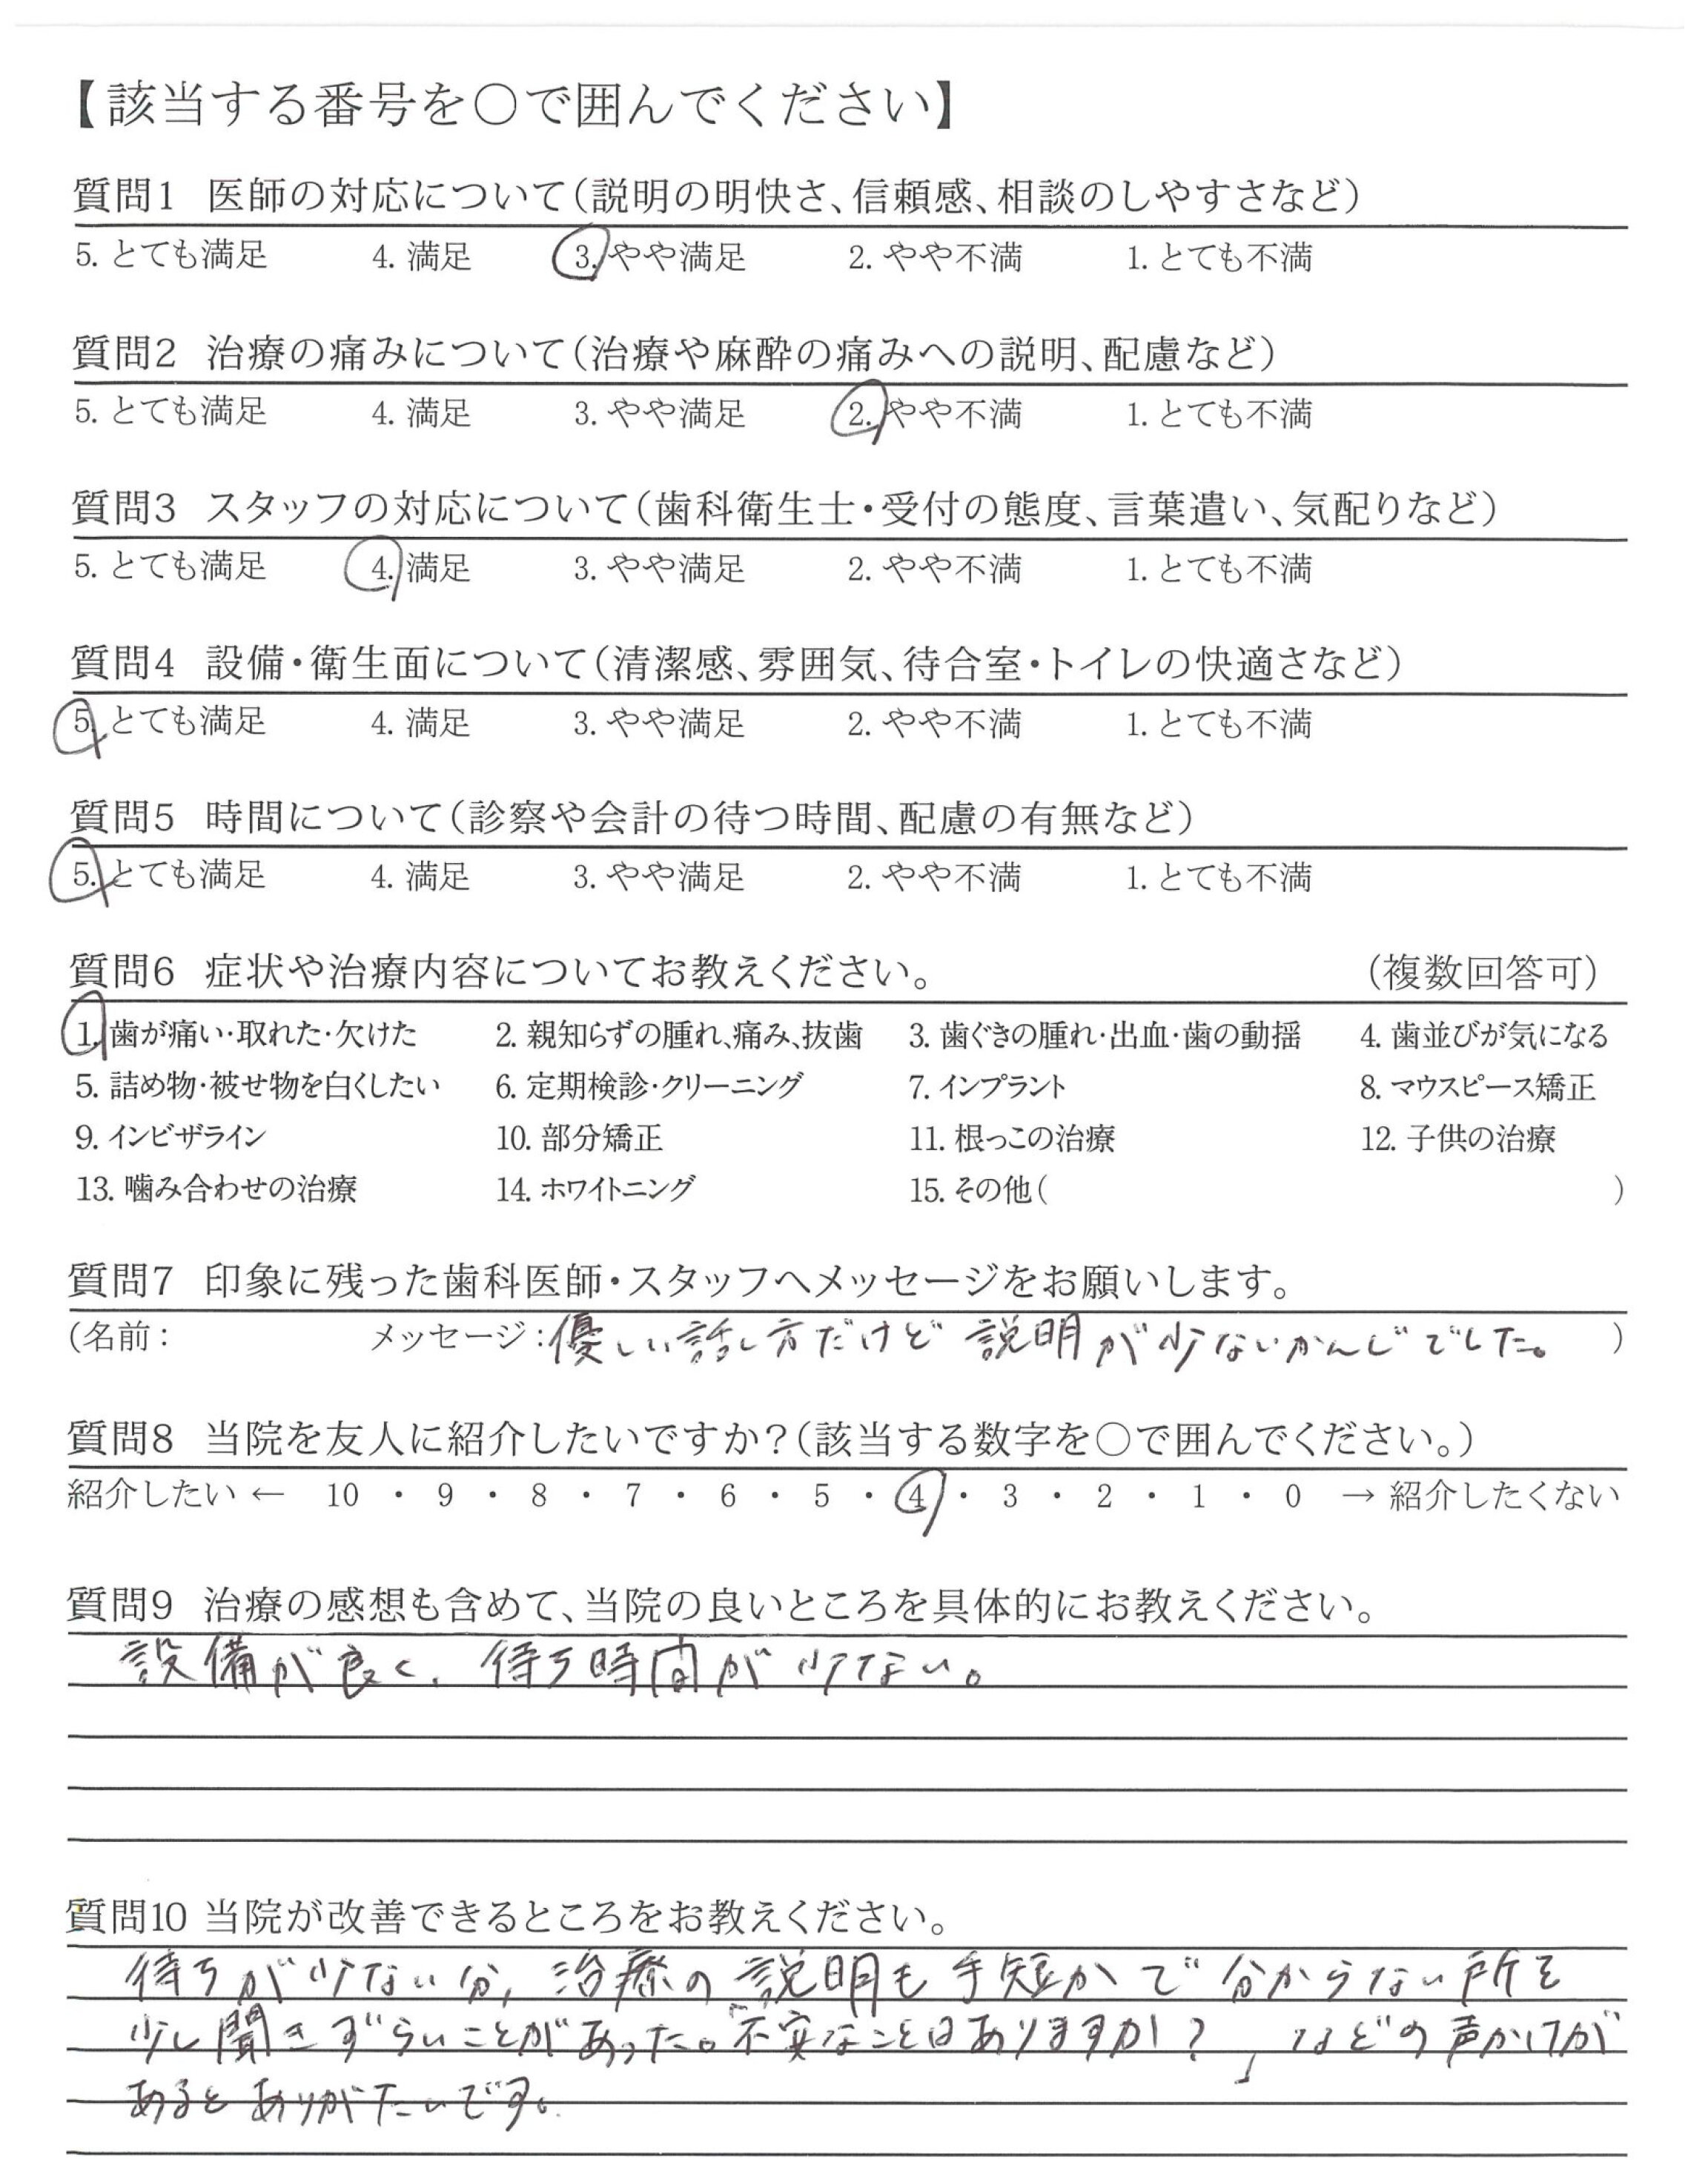 【該当する番号を〇で囲んでください】
質問1 医師の対応について(説明の明快さ、信頼感、相談のしやすさなど)
5. とても満足 4. 満足 3. やや満足 2. やや不満 1. とても不満
質問2 治療の痛みについて(治療や麻酔の痛みへの説明、配慮など)
5. とても満足 4. 満足 3. やや満足 2. やや不満 1. とても不満
質問3 スタッフの対応について(歯科衛生士・受付の態度、言葉遣い、気配りなど)
5. とても満足 4. 満足 3. やや満足 2. やや不満 1. とても不満
質問4 設備・衛生面について(清潔感、雰囲気、待合室・トイレの快適さなど)
5. とても満足 4. 満足 3. やや満足 2. やや不満 1. とても不満
質問5 時間について(診察や会計の待つ時間、配慮の有無など)
5. とても満足 4. 満足 3. やや満足 2. やや不満 1. とても不満
質問6 症状や治療内容についてお教えください。 (複数回答可)
1. 歯が痛い・取れた・欠けた 2. 親知らずの腫れ、痛み、抜歯 3. 歯ぐきの腫れ・出血・歯の動揺 4. 歯並びが気になる
5. 詰め物・被せ物を白くしたい 6. 定期検診・クリーニング 7. インプラント 8. マウスピース矯正
9. インビザライン 10. 部分矯正 11. 根っこの治療 12. 子供の治療
13. 噛み合わせの治療 14. ホワイトニング 15. その他( )
質問7 印象に残った歯科医師・スタッフへメッセージをお願いします。
(名前: メッセージ:優しい話し方だけど 説明が少ないかんじでした。 )
質問8 当院を友人に紹介したいですか?(該当する数字を〇で囲んでください。)
紹介したい ← 10 ・ 9 ・ 8 ・ 7 ・ 6 ・ 5 ・ 4 ・ 3 ・ 2 ・ 1 ・ 0 → 紹介したくない
質問9 治療の感想も含めて、当院の良いところを具体的にお教えください。
設備が良く、待ち時間が少ない。
質問10 当院が改善できるところをお教えください。
待ちが少ない分、治療の説明も手短かで分からない所を
少し聞きずらいことがあった。「不安なことはありますか?」などの声かけが
あるとありがたいです。